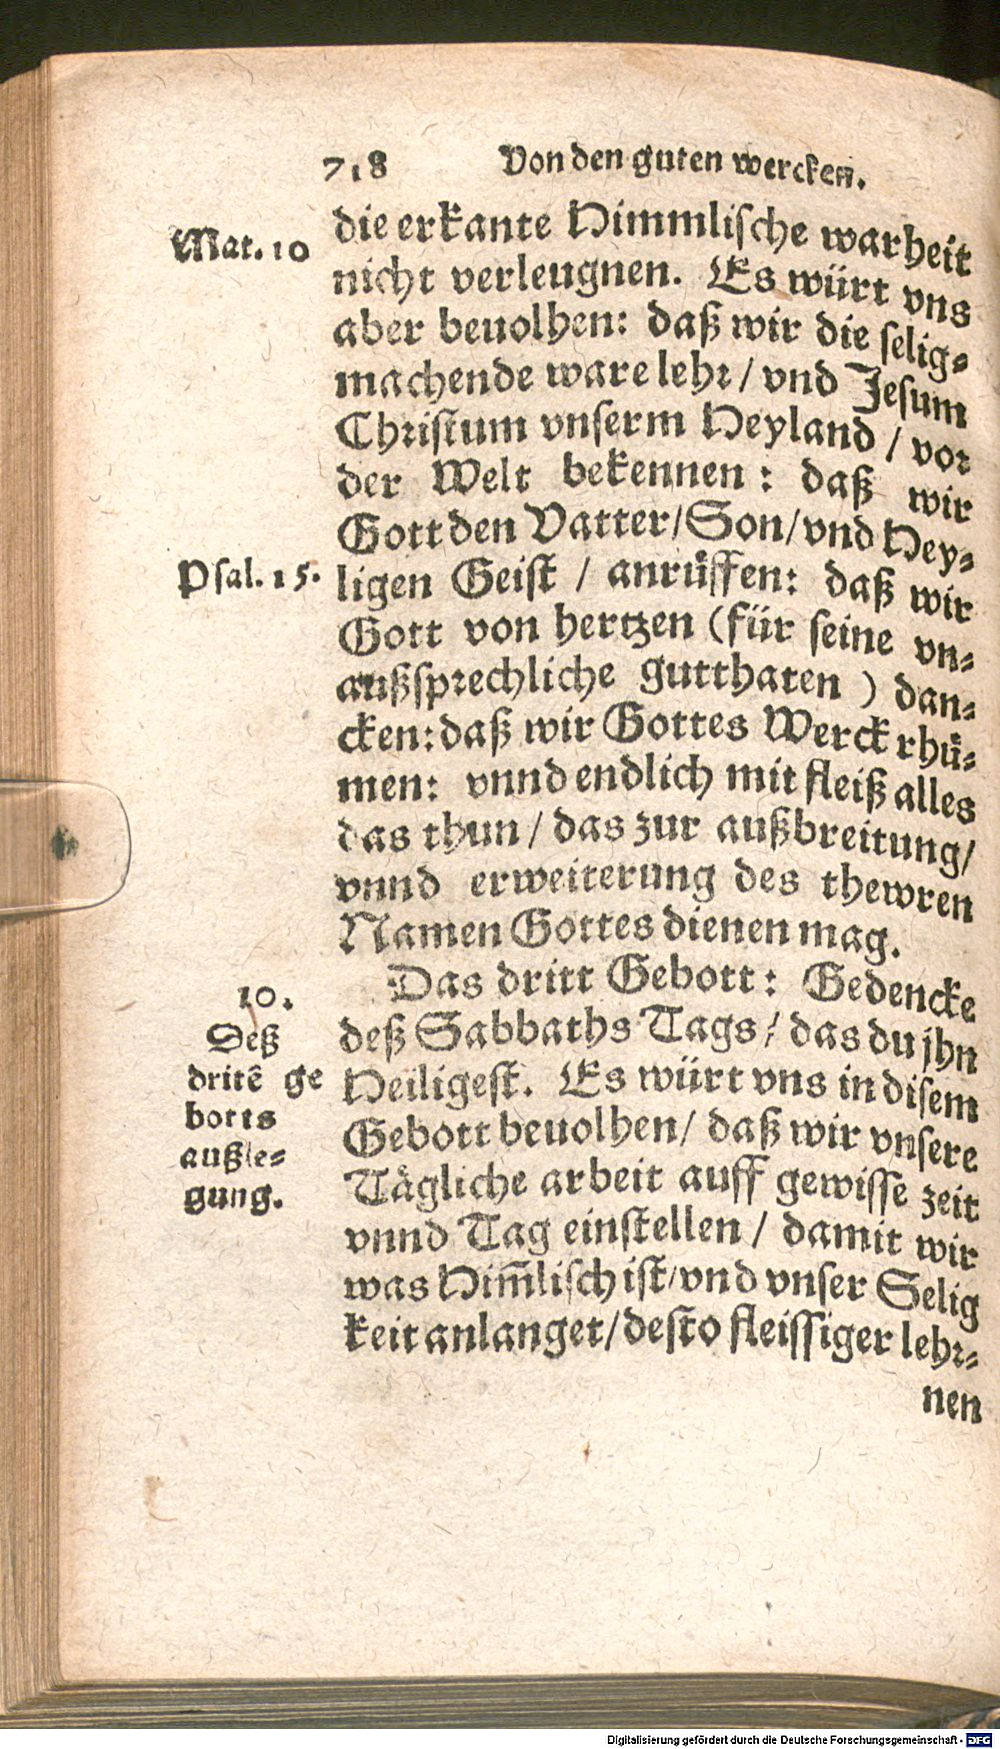 718 Von den guten wercken.
Mat. 10
die erkante Himmlische warheit
nicht verleugnen. Es würt vns
aber beuolhen: daß wir die selig-
machende ware lehr / vnd Jesum
Christum vnserm Heyland / vor
der Welt bekennen: daß wir
Gott den Vatter/Son/vnd Hey-
Psal. 15.
ligen Geist / anrůffen: daß wir
Gott von hertzen (für seine vn-
außsprechliche gutthaten ) dan-
cken: daß wir Gottes Werck rhů-
men: vnnd endlich mit fleiß alles
das thun / das zur außbreitung/
vnnd erweiterung des thewren
Namen Gottes dienen mag.
10.
Deß
dritē ge
botts
außle-
gung.
Das dritt Gebott: Gedencke
deß Sabbaths Tags / das du jhn
Heiligest. Es würt vns in disem
Gebott beuolhen/ daß wir vnsere
Tägliche arbeit auff gewisse zeit
vnnd Tag einstellen / damit wir
was Him̄lisch ist/vnd vnser Selig
keit anlanget/desto fleissiger lehr-
nen
Digitalisierung gefördert durch die Deutsche Forschungsgemeinschaft - DFG